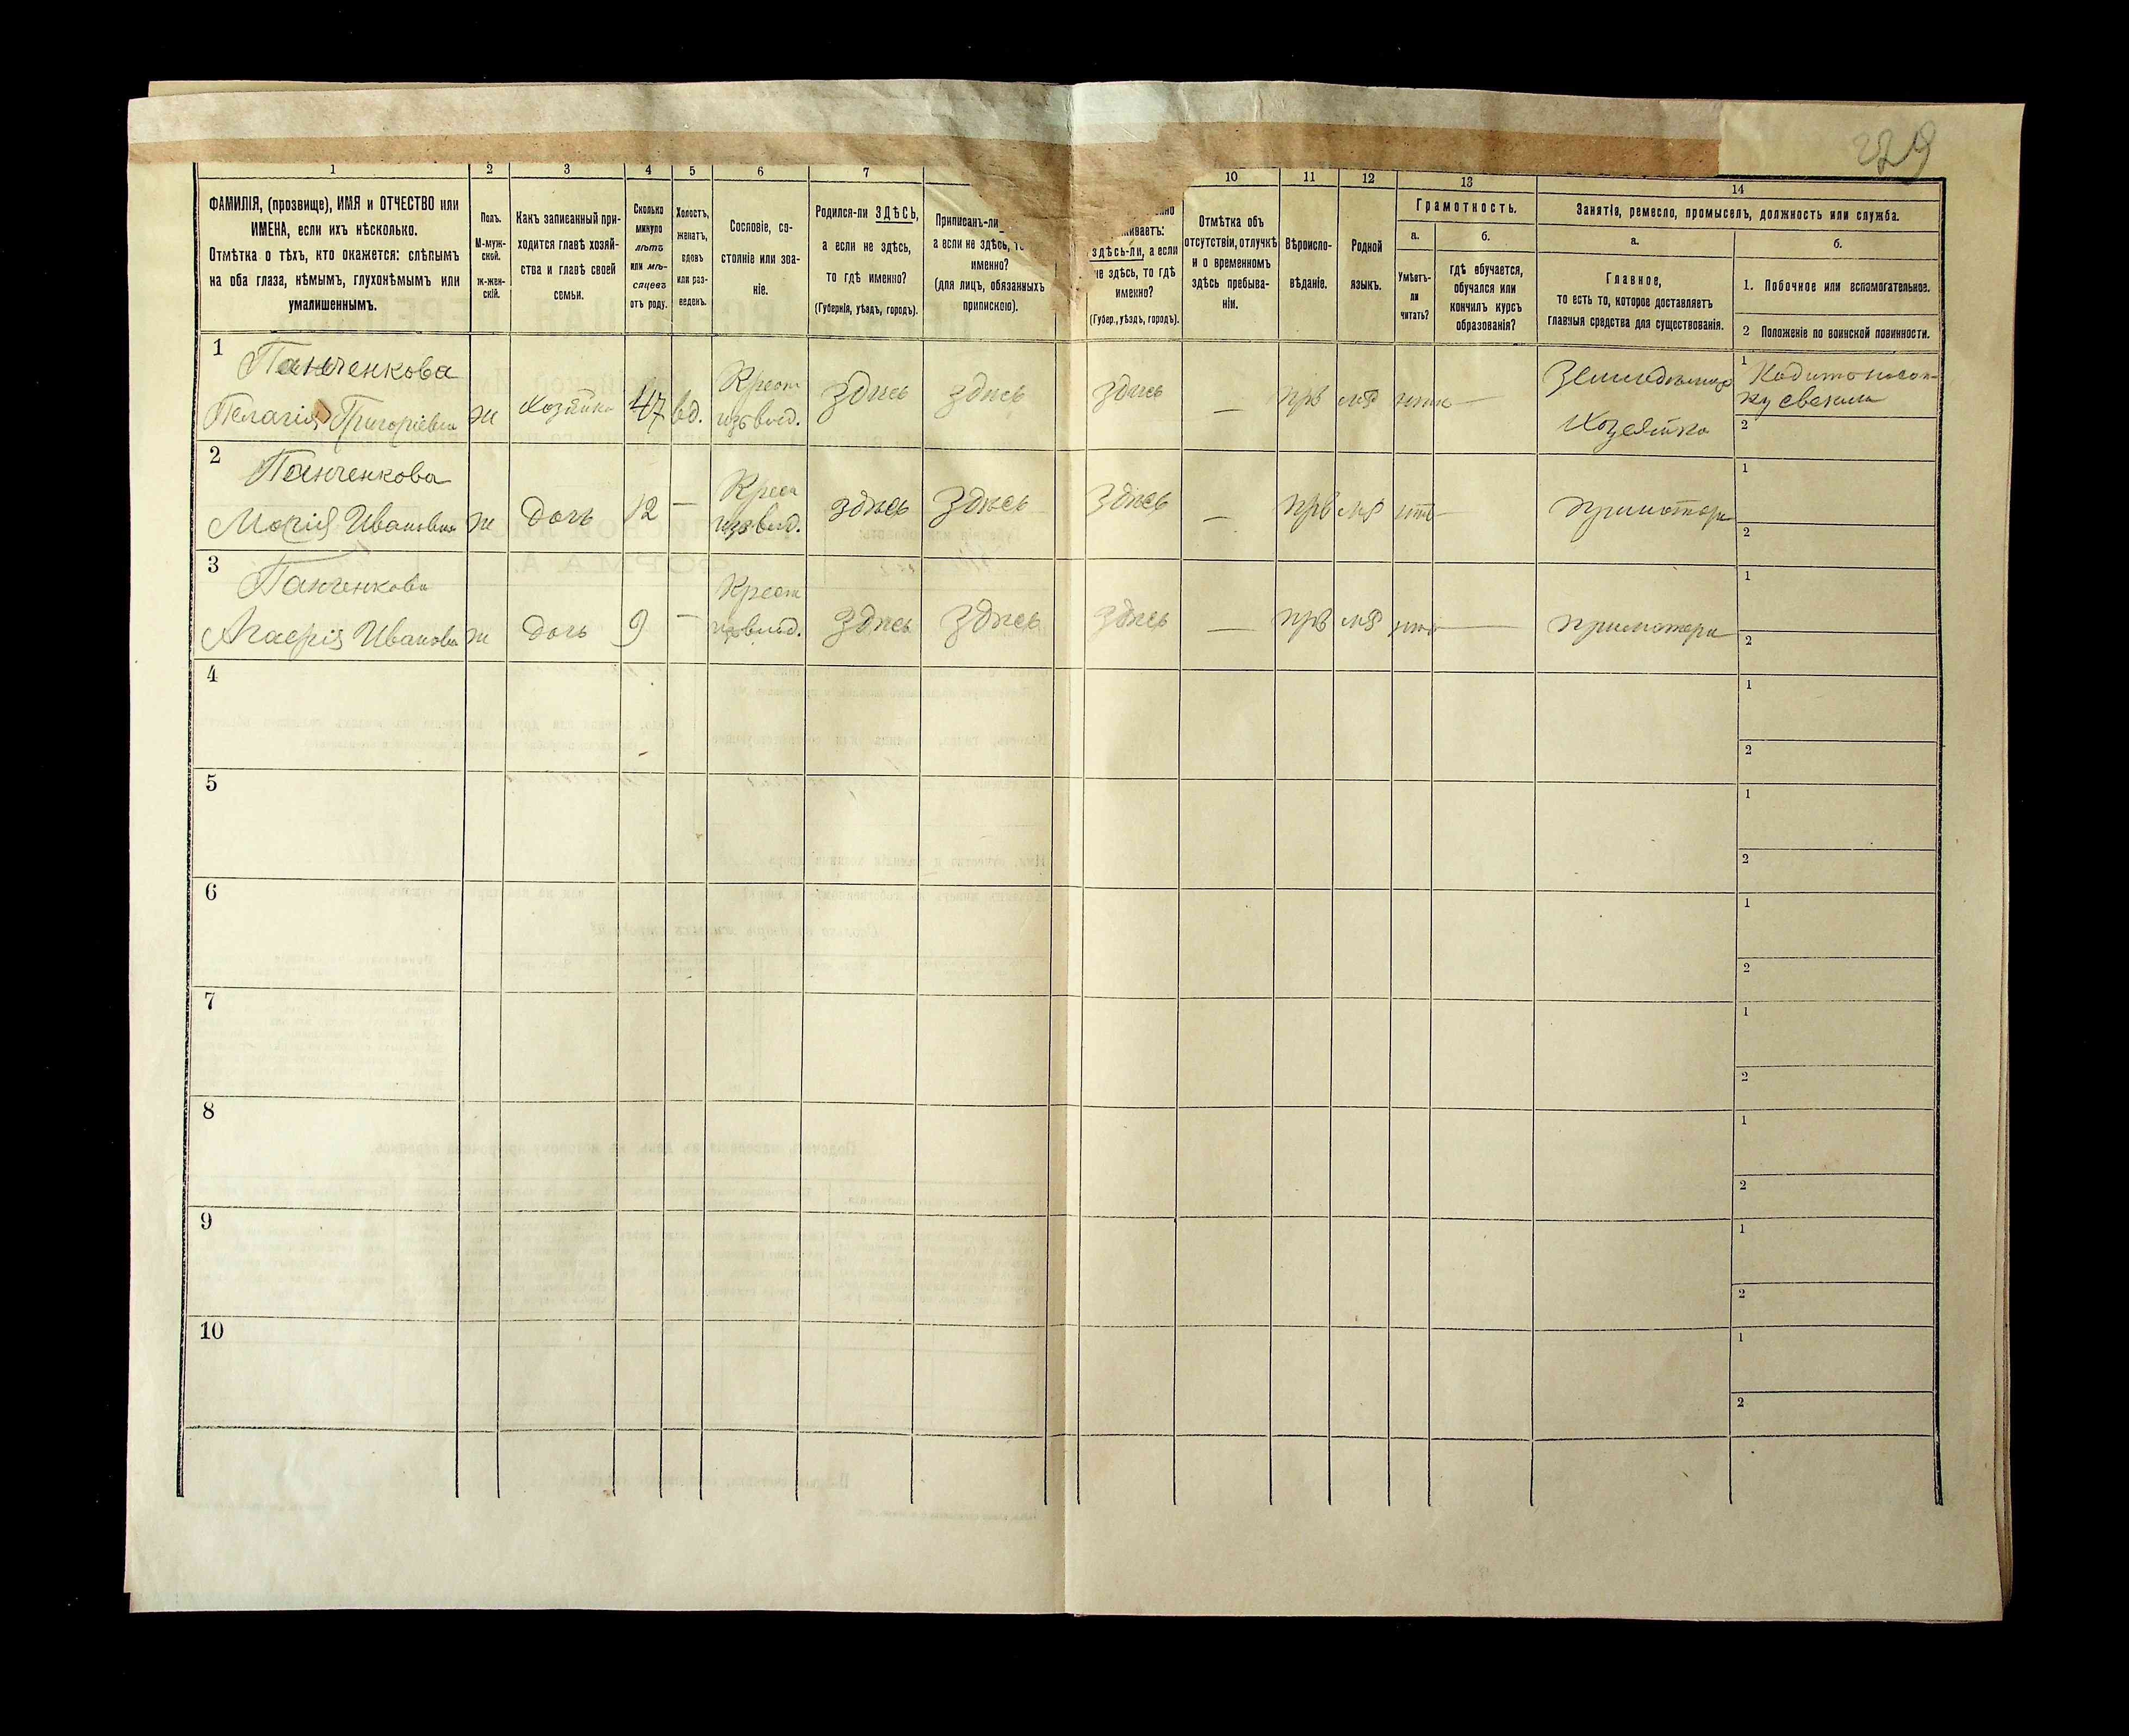 229
1 2 3 4 5 6 7 10 11 12 13 14
ФАМИЛІЯ, (прозвище), ИМЯ и ОТЧЕСТВО или
ИМЕНА, если ихъ нѣсколько.
Отмѣтка о тѣхъ, кто окажется: слѣпымъ
на оба глаза, нѣмымъ, глухонѣмымъ или
умалишеннымъ.
Полъ.
М-муж-
ской.
ж-жен-
скій.
Какъ записанный при-
ходится главѣ хозяй-
ства и главѣ своей
семьи.
Сколько
минуло
лѣтъ
или мѣ-
сяцевъ
отъ роду.
Холостъ,
женатъ,
вдовъ
или раз-
веденъ.
Сословіе, со-
стояніе или зва-
ніе.
Родился-ли ЗДѢСЬ,
а если не здѣсь,
то гдѣ именно?
(Губернія, уѣздъ, городъ).
Приписанъ-ли
а если не здѣсь, то
именно?
(для лицъ, обязанныхъ
припискою).
здѣсь-ли, а если
не здѣсь, то гдѣ
именно?
(Губер., уѣздъ, городъ).
Отмѣтка объ
отсутствіи, отлучкѣ
и о временномъ
здѣсь пребыва-
ніи.
Вѣроиспо-
вѣданіе.
Родной
языкъ.
Грамотность.
а.
Умѣетъ-
ли
читать?
б.
гдѣ обучается,
обучался или
кончилъ курсъ
образованія?
Занятіе, ремесло, промыселъ, должность или служба.
а.
Главное,
то есть то, которое доставляетъ
главныя средства для существованія.
б.
1. Побочное или вспомогательное.
2 Положеніе по воинской повинности.
1 Панченкова
Пелагія Григоріевна ж Хозяйка 47 вд. Крест изъ влад. здѣсь здѣсь здѣсь — прв мр нѣтъ —
Хозяйка
1
2
2 Панченкова
Марія Ивановна ж дочь 12 — Крест изъ влад. здѣсь здѣсь здѣсь — прв мр нѣтъ — при матери
1
2
3 Панченкова
Агафія Иванова ж дочь 9 — Крест изъ влад. здѣсь здѣсь здѣсь — прв мр нѣтъ — при матери
1
2
4
1
2
5
1
2
6
1
2
7
1
2
8
1
2
9
1
2
10
1
2